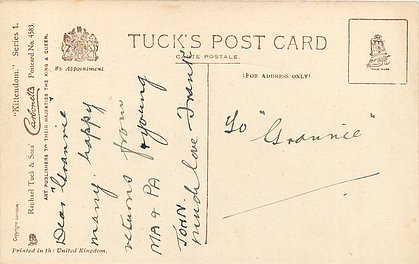 "Kittendom." Series I.
Raphael Tuck & Sons' "Carbonette" Postcard No. 3583.
ART PUBLISHERS TO THEIR MAJESTIES THE KING & QUEEN.
Copyright London
Printed in the United Kingdom.
By Appointment
TUCK'S POST CARD
CARTE POSTALE.
(FOR ADDRESS ONLY)
Dear "Grannie"
many happy
returns from
MA & PA & young
JOHN.
much love Frank
To "Grannie"